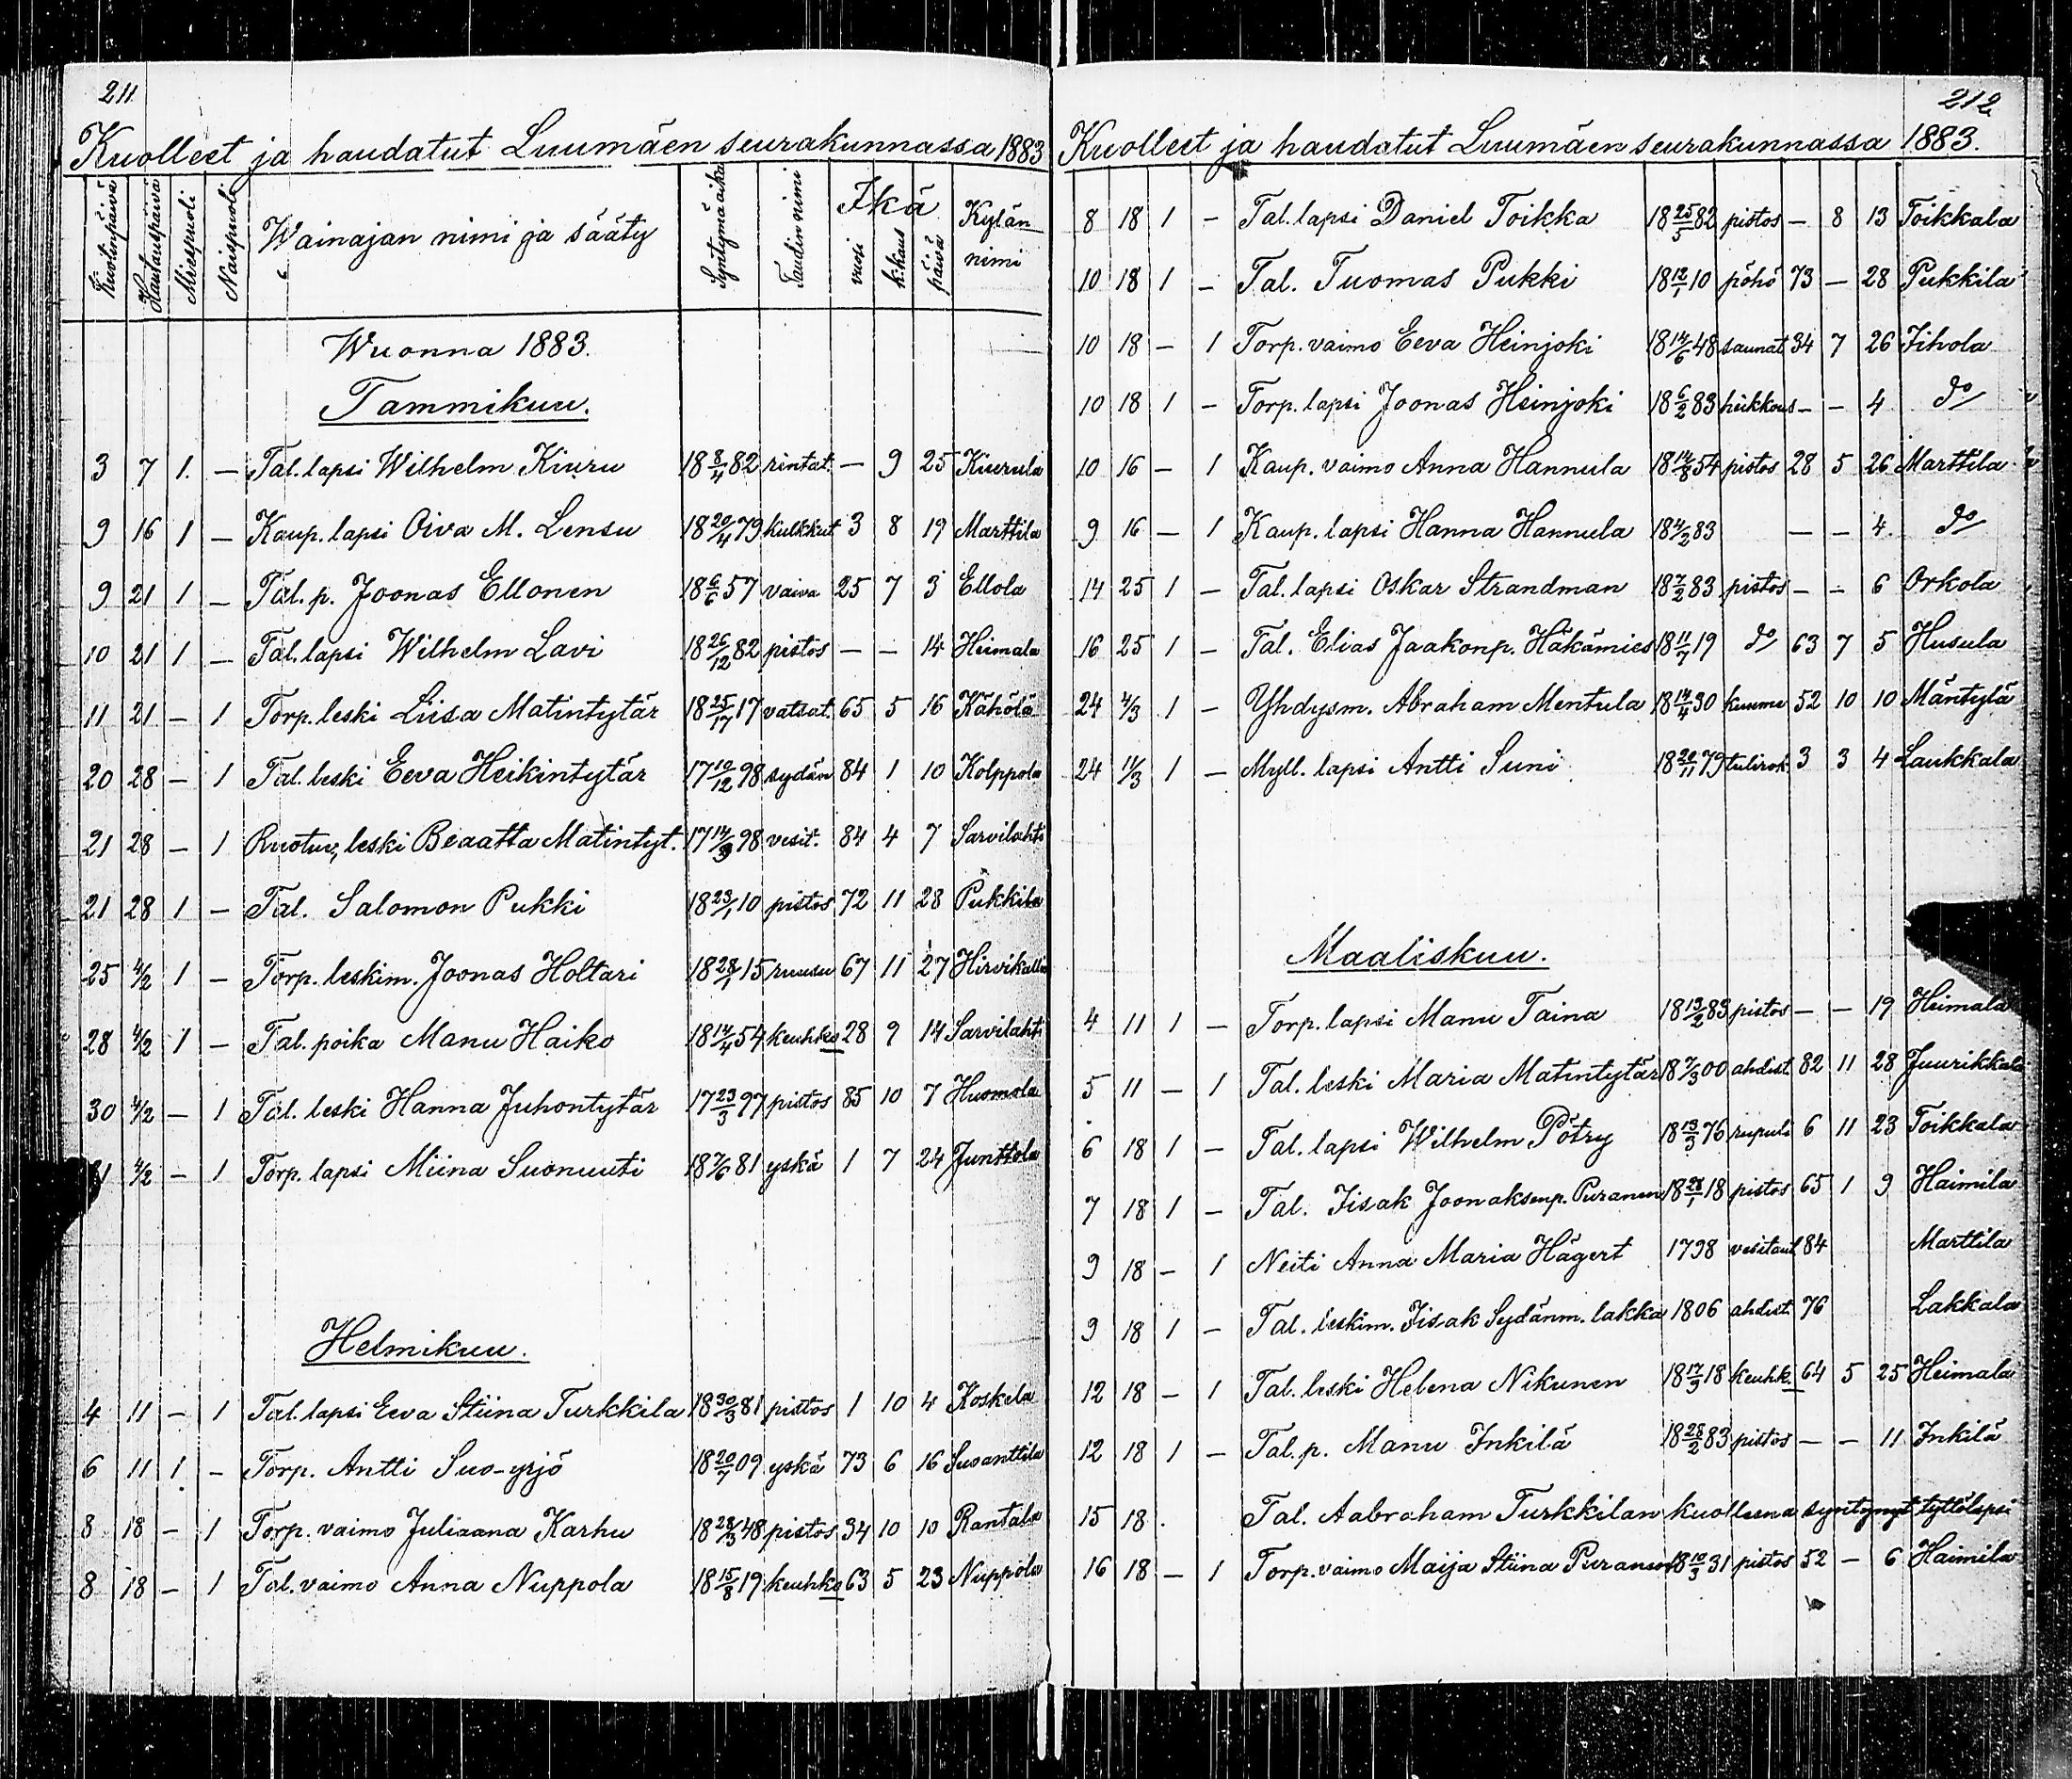 211
Kuolleet ja haudatut Luumäen seurakunnassa 1883
Kuolinpäivä Hautauspäivä Miespuoli Naispuoli Wainajan nimi ja sääty Syntymäaika Taudin nimi Ikä vuosi k:kaus päivä Kylän nimi
Wuonna 1883.
Tammikuu.
3 7 1. — Tal. lapsi Wilhelm Kiuru 18 8/4 82 rintat. — 9 25 Kiurula
9 16 1 — Kaup. lapsi Oiva M. Lensu 18 20/4 79 kulkkut 3 8 19 Marttila
9 21 1 — Tal. p. Joonas Ellonen 18 6/6 57 vaiva 25 7 3 Ellola
10 21 1 — Tal. lapsi Wilhelm Lavi 18 26/12 82 pistos — — 14 Heimala
11 21 — 1 Torp. leski Liisa Matintytär 18 25/7 17 vatsat. 65 5 16 Kähölä
20 28 — 1 Tal. leski Eeva Heikintytär 17 10/12 98 sydän 84 1 10 Kolppola
21 28 — 1 Ruotuv. leski Beaatta Matintyt. 17 14/9 98 vesit. 84 4 7 Sarvilahti
21 28 1 — Tal. Salomon Pukki 18 23/1 10 pistos 72 11 28 Pukkila
25 4/2 1 — Torp. leskim. Joonas Holtari 18 28/1 15 ruusu 67 11 27 Hirvikallio
28 4/2 1 — Tal. poika Manu Haiko 18 14/4 54 keuhko 28 9 14 Sarvilahti
30 4/2 — 1 Tal. leski Hanna Juhontytär 17 23/3 97 pistos 85 10 7 Huomola
31 4/2 — 1 Torp. lapsi Miina Suonuuti 18 7/6 81 yskä 1 7 24 Junttola
Helmikuu.
4 11 — 1 Tal. lapsi Eeva Stiina Turkkila 18 30/3 81 pistos 1 10 4 Koskela
6 11 1 — Torp. Antti Suo-yrjö 18 20/7 09 yskä 73 6 16 Suoanttila
8 18 — 1 Torp. vaimo Juliaana Karhu 18 28/3 48 pistos 34 10 10 Rantala
8 18 — 1 Tal. vaimo Anna Nuppola 18 15/8 19 keuhko 63 5 23 Nuppola
212
Kuolleet ja haudatut Luumäen seurakunnassa 1883.
8 18 1 — Tal. lapsi Daniel Toikka 18 25/5 82 pistos — 8 13 Toikkala
10 18 1 — Tal. Tuomas Pukki 18 12/1 10 pöhö 73 — 28 Pukkila
10 18 — 1 Torp. vaimo Eeva Heinjoki 18 14/6 48 saunat 34 7 26 Iihola
10 18 1 — Torp. lapsi Joonas Heinjoki 18 6/2 83 heikkous — — 4 do
10 16 — 1 Kaup. vaimo Anna Hannula 18 14/8 54 pistos 28 5 26 Marttila
9 16 — 1 Kaup. lapsi Hanna Hannula 18 4/2 83 — — 4. do
14 25 1 — Tal. lapsi Oskar Strandman 18 7/2 83 pistos — — 6 Orkola
16 25 1 — Tal. Elias Jaakonp. Häkämies 18 11/7 19 do 63 7 5 Husula
24 4/3 1 — Yhdysm. Abraham Mentula 18 14/4 30 kuume 52 10 10 Mäntylä
24 11/3 1 — Myll. lapsi Antti Suni 18 20/11 79 tulirok. 3 3 4 Laukkala
Maaliskuu.
4 11 1 — Torp. lapsi Manu Taina 18 13/2 83 pistos — — 19 Heimala
5 11 — 1 Tal. leski Maria Matintytär 18 7/3 00 ahdist 82 11 28 Juurikkala
6 18 1 — Tal. lapsi Wilhelm Pötry 18 13/3 76 rupuli 6 11 23 Toikkala
7 18 1 — Tal. Iisak Joonaksenp. Puranen 18 28/1 18 pistos 65 1 9 Haimila
9 18 — 1 Neiti Anna Maria Hägert 1798 vesitaut 84 Marttila
9 18 1 — Tal. leskim. Iisak Sydänm. lakka 1806 ahdist. 76 Lakkala
12 18 — 1 Tal. leski Helena Nikunen 18 17/9 18 keuhk. 64 5 25 Heimala
12 18 1 — Tal. p. Manu Inkilä 18 28/2 83 pistos — — 11 Inkilä
15 18. Tal. Aabraham Turkkilan kuolleena syntynyt tyttölapsi
16 18 — 1 Torp. vaimo Maija Stiina Puranen 18 10/3 31 pistos 52 — 6 Haimila